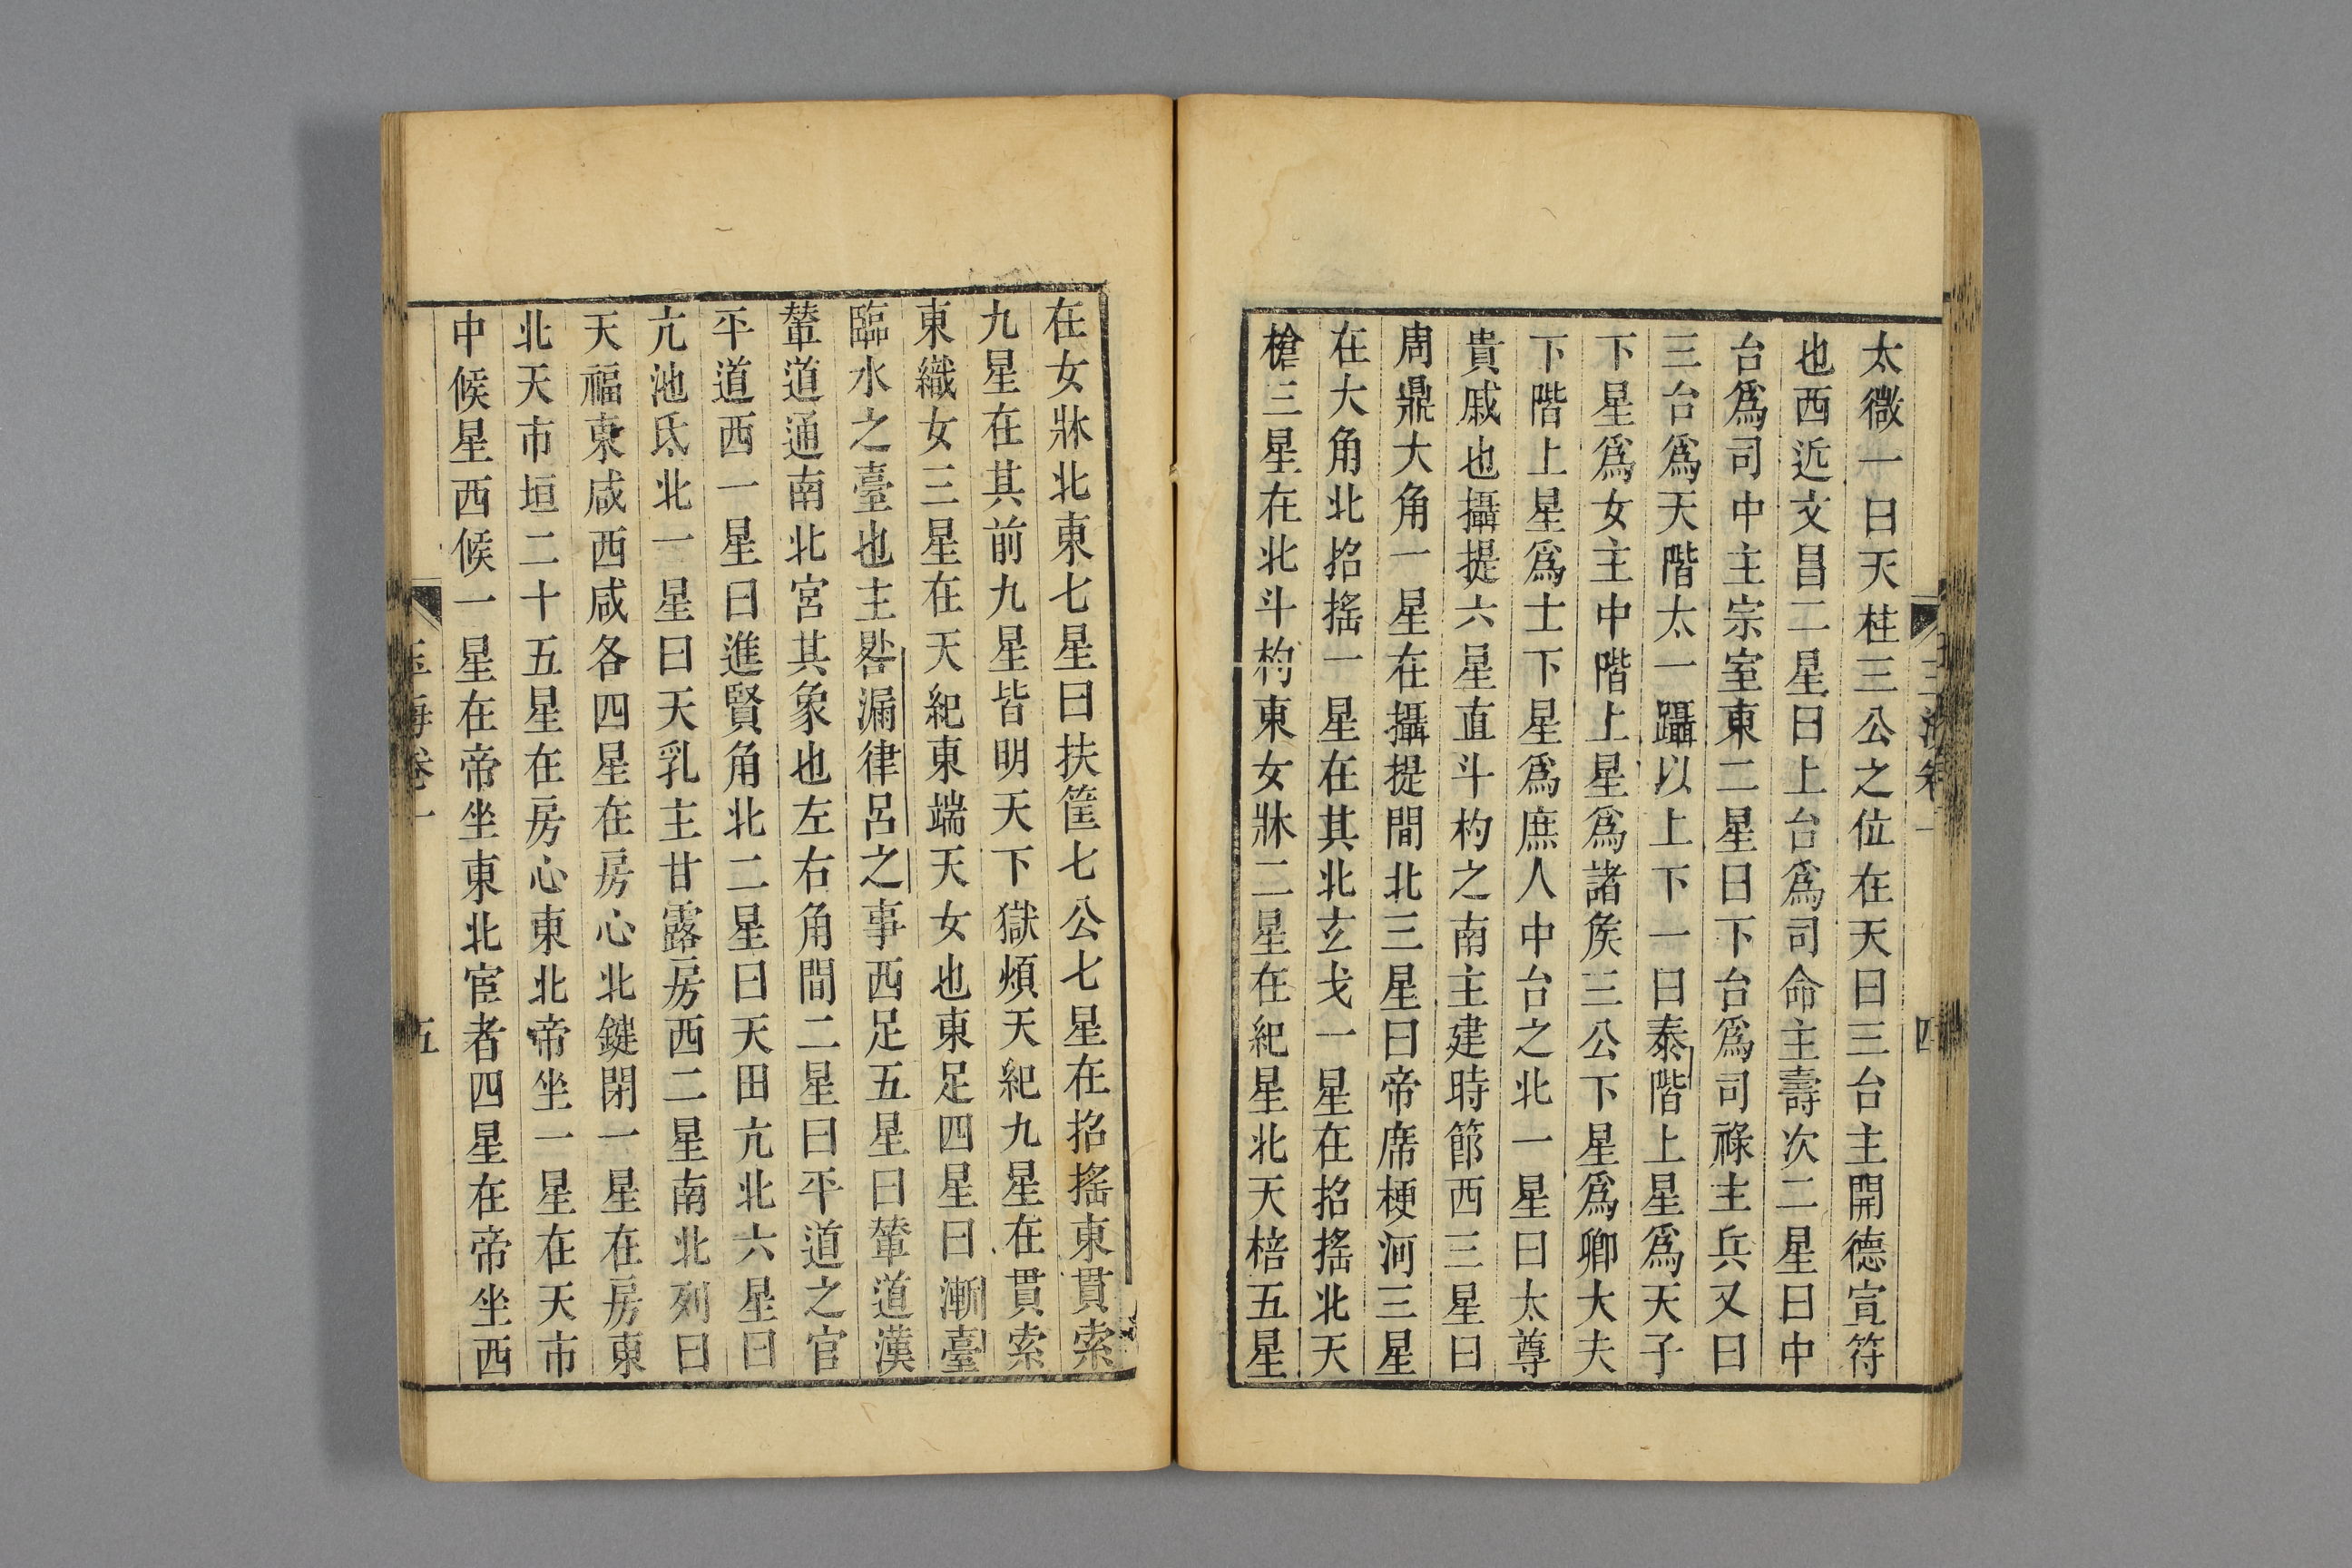 太微一曰天柱三公之位在天曰三台主開德宣符
也西近文昌二星曰上台爲司命主壽次二星曰中
台爲司中主宗室東二星曰下台爲司祿主兵又曰
三台爲天階太一躡以上下一曰泰階上星爲天子
下星爲女主中階上星爲諸侯三公下星爲卿大夫
下階上星爲士下星爲庶人中台之北一星曰太尊
貴戚也攝提六星直斗杓之南主建時節西三星曰
周鼎大角一星在攝提間北三星曰帝席梗河三星
在大角北招搖一星在其北玄戈一星在招搖北天
槍三星在北斗杓東女牀二星在紀星北天棓五星
在女牀北東七星曰扶筐七公七星在招搖東貫索
九星在其前九星皆明天下獄煩天紀九星在貫索
東織女三星在天紀東端天女也東足四星曰漸臺
臨水之臺也主晷漏律呂之事西足五星曰輦道漢
輦道通南北宮其象也左右角間二星曰平道之官
平道西一星曰進賢角北二星曰天田亢北六星曰
亢池氐北一星曰天乳主甘露房西二星南北列曰
天福東咸西咸各四星在房心北鍵閉一星在房東
北天市垣二十五星在房心東北帝坐一星在天市
中候星西候一星在帝坐東北宦者四星在帝坐西
玉海卷一
五